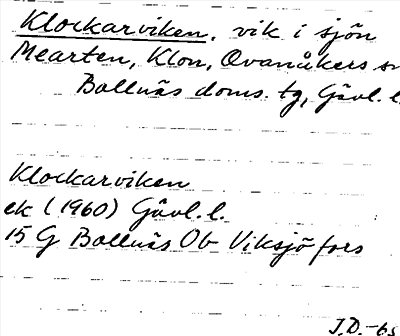 Klockarviken, vik i sjön
Mearten, Klon, Ovanåkers sn
Bollnäs doms. tg, Gävl. l.
Klockarviken
ek (1960) Gävl. l.
15 G Bollnäs Ob Viksjöfors
J.D.-65